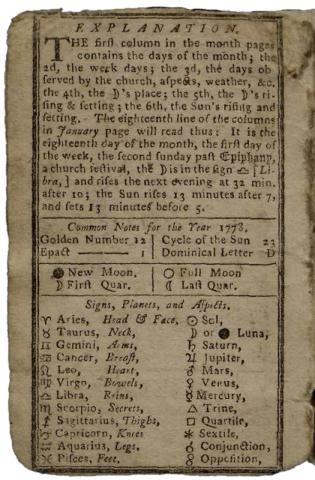 EXPLANATION.
THE first column in the month pages
contains the days of the month; the
2d, the week days; the 3d, the days ob
served by the church, aspects, weather, &c.
the 4th, the ☽'s place; the 5th, the ☽'s ri-
sing & setting; the 6th, the Sun's rising and
setting. The eighteenth line of the columns
in January page will read thus: It is the
eighteenth day of the month, the first day of
the week, the second sunday past Epiphany,
a church festival, the ☽ is in the sign ♎ [Li-
bra,] and rises the next evening at 32 min.
after 10; the Sun rises 13 minutes after 7,
and sets 13 minutes before 5.
Common Notes for the Year 1778.
Golden Number 12 | Cycle of the Sun 23
Epact — 1 | Dominical Letter D
● New Moon. ○ Full Moon
☽ First Quar. ☾ Last Quar.
Signs, Planets, and Aspects.
♈ Aries, Head & Face, ☉ Sol,
♉ Taurus, Neck, ☽ or ● Luna,
♊ Gemini, Arms, ♄ Saturn,
♋ Cancer, Breast, ♃ Jupiter,
♌ Leo, Heart, ♂ Mars,
♍ Virgo, Bowels, ♀ Venus,
♎ Libra, Reins, ☿ Mercury,
♏ Scorpio, Secrets, △ Trine,
♐ Sagittarius, Thighs, □ Quartile,
♑ Capricorn, Knees ⚹ Sextile,
♒ Aquarius, Legs. ☌ Conjunction,
♓ Pisces, Feet. ☍ Opposition,